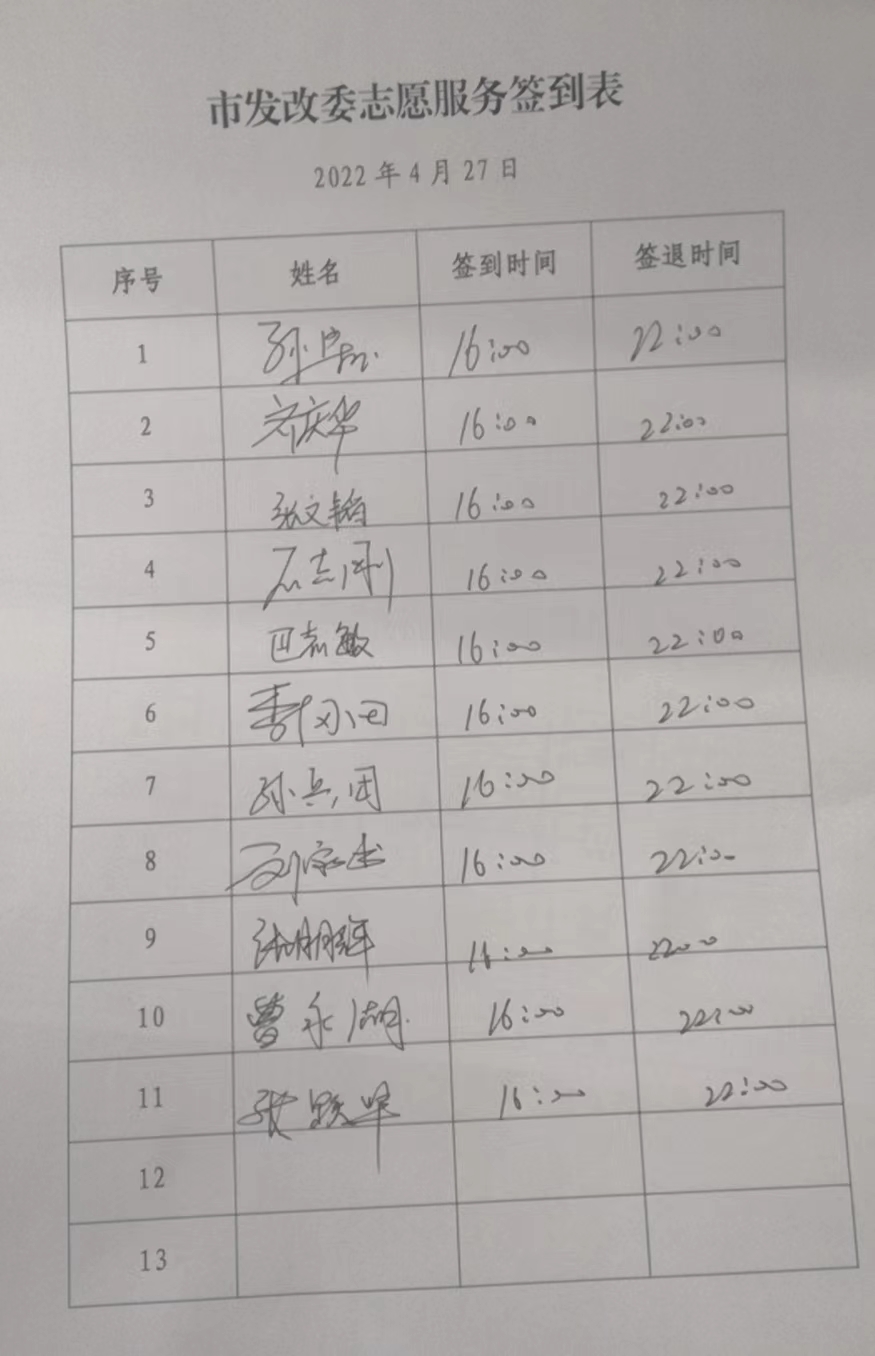 市发改委志愿服务签到表
2022年4月27日
序号 姓名 签到时间 签退时间
1 16:00 22:00
2 齐庆华 16:00 22:00
3 张文韬 16:00 22:00
4 石志刚 16:00 22:00
5 巴志敏 16:00 22:00
6 16:00 22:00
7 孙兵团 16:00 22:00
8 16:00 22:00
9 16:00 22:00
10 曹永湖 16:00 22:00
11 张颖华 16:00 22:00
12
13